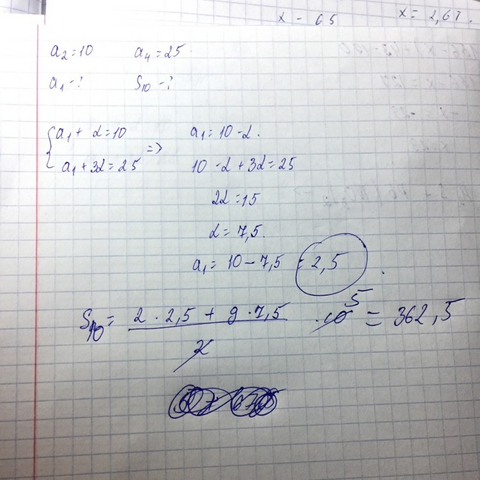 x - 65   x = 2,67.
a₂=10   a₄=25
a₁-?   S₁₀-?
{a₁+d=10   =>   a₁=10-d.
a₁+3d=25   10-d+3d=25
2d=15
d=7,5.
a₁=10-7,5=2,5
S₁₀= (2·2,5+9·7,5)/2 ·10 5 = 362,5